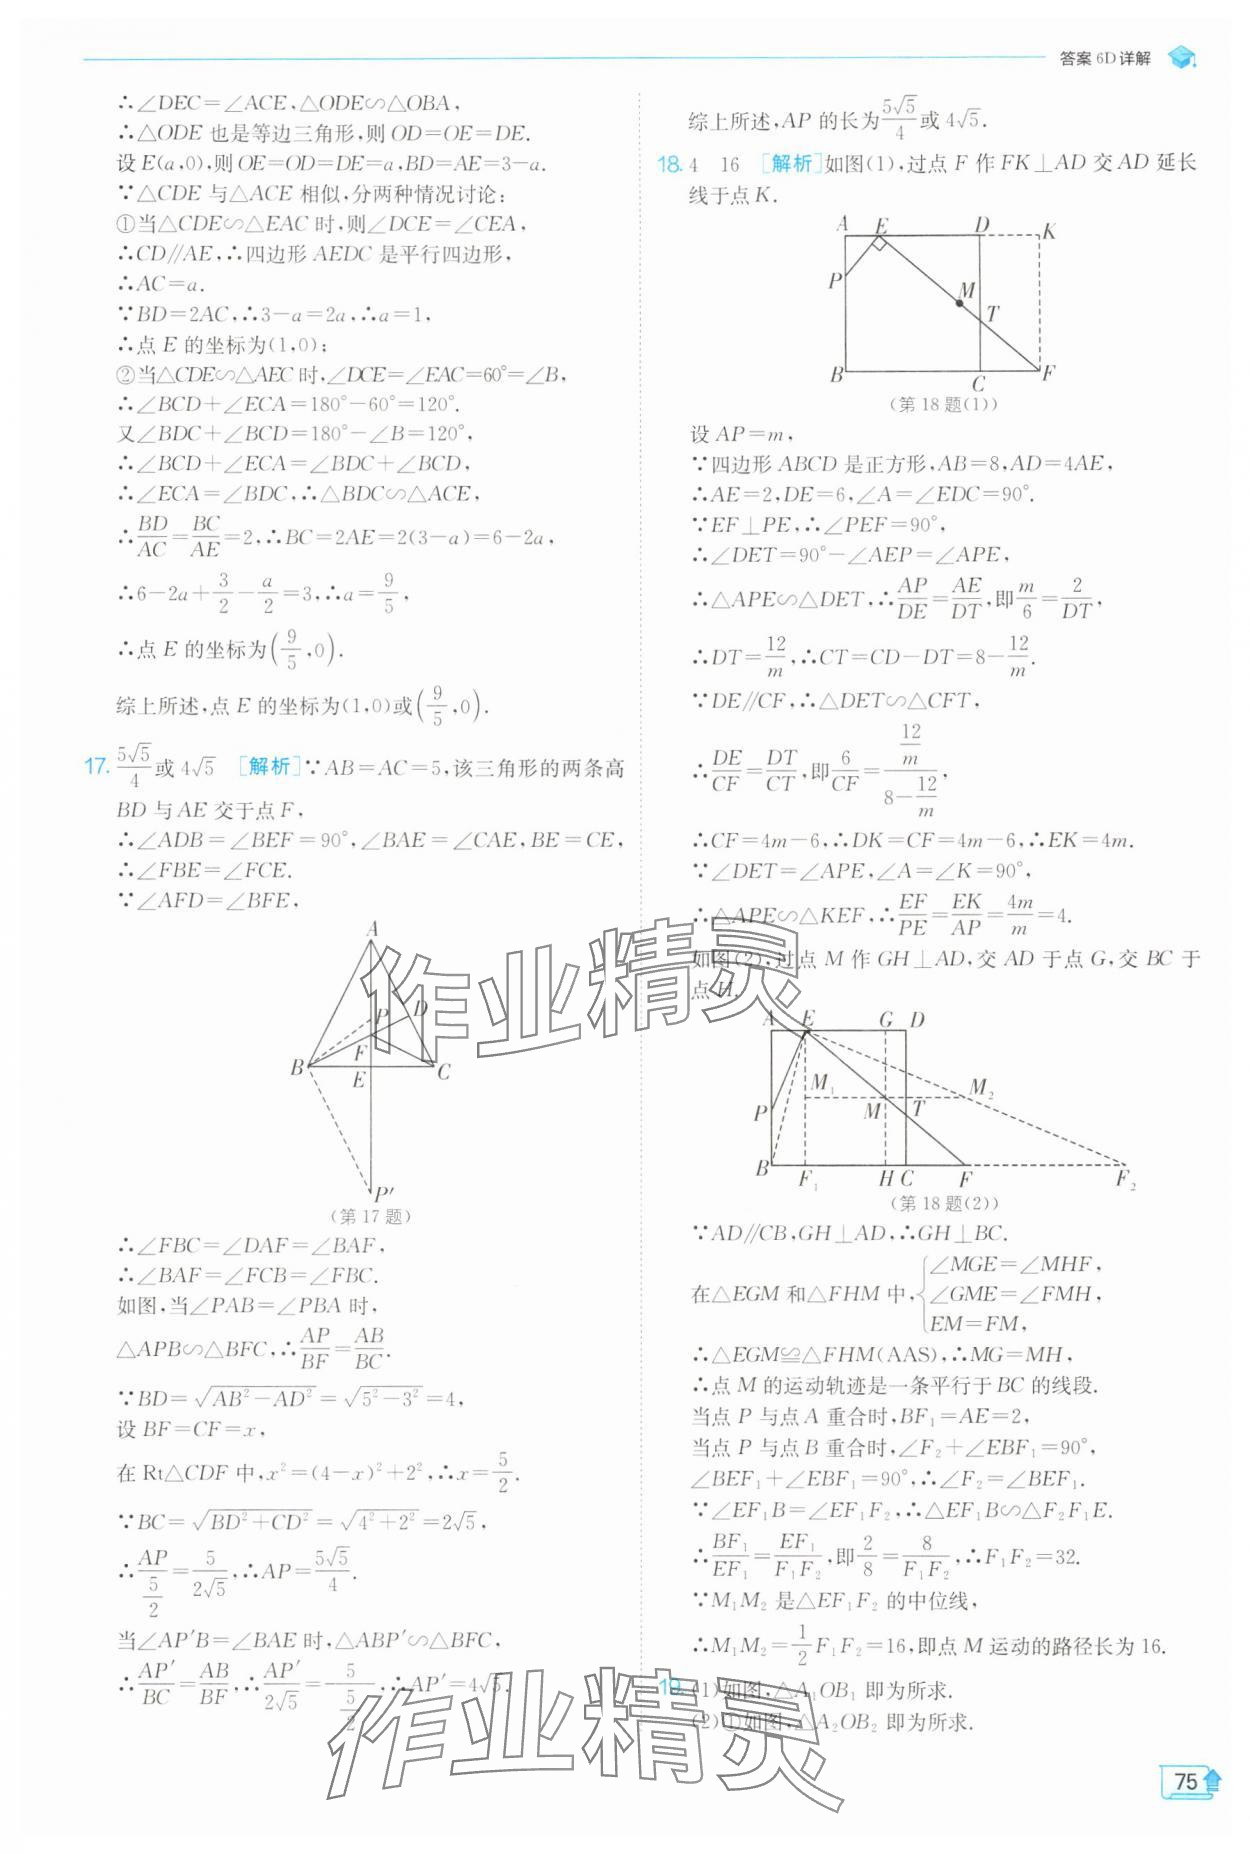 答案 6D 详解
∴∠DEC=∠ACE,△ODE∽△OBA,
∴△ODE 也是等边三角形,则 OD=OE=DE.
设E(a,0),则OE=OD=DE=a,BD=AE=3-a.
∵△CDE 与△ACE 相似,分两种情况讨论:
①当△CDE∽△EAC 时,则∠DCE=∠CEA,
∴CD∥AE,∴四边形 AEDC 是平行四边形,
∴AC=a.
∵BD=2AC,∴3-a=2a,∴a=1,
∴点 E 的坐标为(1,0);
②当△CDE∽△AEC 时,∠DCE=∠EAC=60°=∠B,
∴∠BCD+∠ECA=180°-60°=120°.
又∠BDC+∠BCD=180°-∠B=120°,
∴∠BCD+∠ECA=∠BDC+∠BCD,
∴∠ECA=∠BDC,∴△BDC∽△ACE,
∴BD/AC=BC/AE=2,∴BC=2AE=2(3-a)=6-2a,
∴6-2a+3/2-a/2=3,∴a=9/5,
∴点 E 的坐标为(9/5,0).
综上所述,点 E 的坐标为(1,0)或(9/5,0).
17. 5√5/4或 4√5 [解析]∵AB=AC=5,该三角形的两条高
BD 与AE 交于点 F,
∴∠ADB=∠BEF=90°,∠BAE=∠CAE,BE=CE,
∴∠FBE=∠FCE.
∵∠AFD=∠BFE,
A
P
D
F
B
E
C
P′
(第 17 题)
∴∠FBC=∠DAF=∠BAF,
∴∠BAF=∠FCB=∠FBC.
如图,当∠PAB=∠PBA 时,
△APB∽△BFC,∴AP/BF=AB/BC.
∵BD=√(AB²-AD²)=√(5²-3²)=4,
设 BF=CF=x,
在 Rt△CDF 中,x²=(4-x)²+2²,∴x=5/2.
∵BC=√(BD²+CD²)=√(4²+2²)=2√5,
∴AP/(5/2)=5/(2√5),∴AP=5√5/4.
当∠AP′B=∠BAE 时,△ABP′∽△BFC,
∴AP′/BC=AB/BF,∴AP′/(2√5)=5/(5/2),∴AP′=4√5.
综上所述,AP 的长为5√5/4或 4√5.
18. 4 16 [解析]如图(1),过点 F 作 FK⊥AD 交 AD 延长
线于点 K.
A E D K
P
M
T
B C F
(第 18 题(1))
设 AP=m,
∵四边形 ABCD 是正方形,AB=8,AD=4AE,
∴AE=2,DE=6,∠A=∠EDC=90°.
∵EF⊥PE,∴∠PEF=90°,
∴∠DET=90°-∠AEP=∠APE,
∴△APE∽△DET,∴AP/DE=AE/DT,即m/6=2/DT,
∴DT=12/m,∴CT=CD-DT=8-12/m.
∵DE∥CF,∴△DET∽△CFT,
∴DE/CF=DT/CT,即6/CF=(12/m)/(8-12/m),
∴CF=4m-6,∴DK=CF=4m-6,∴EK=4m.
∵∠DET=∠APE,∠A=∠K=90°,
∴△APE∽△KEF,∴EF/PE=EK/AP=4m/m=4.
如图(2),过点 M 作 GH⊥AD,交 AD 于点 G,交 BC 于
点 H.
A E G D
M₁ M₂
P M T
B F₁ H C F F₂
(第 18 题(2))
∵AD∥CB,GH⊥AD,∴GH⊥BC.
在△EGM 和△FHM 中,{∠MGE=∠MHF,
∠GME=∠FMH,
EM=FM,
∴△EGM≌△FHM(AAS),∴MG=MH,
∴点 M 的运动轨迹是一条平行于 BC 的线段.
当点 P 与点 A 重合时,BF₁=AE=2,
当点 P 与点 B 重合时,∠F₂+∠EBF₁=90°,
∠BEF₁+∠EBF₁=90°,∴∠F₂=∠BEF₁.
∵∠EF₁B=∠EF₁F₂,∴△EF₁B∽△F₂F₁E.
∴BF₁/EF₁=EF₁/F₁F₂,即2/8=8/F₁F₂,∴F₁F₂=32.
∵M₁M₂ 是△EF₁F₂ 的中位线,
∴M₁M₂=1/2F₁F₂=16,即点 M 运动的路径长为 16.
19. (1)如图,△A₁OB₁ 即为所求.
(2)①如图,△A₂OB₂ 即为所求.
作业精灵
作业精灵
75